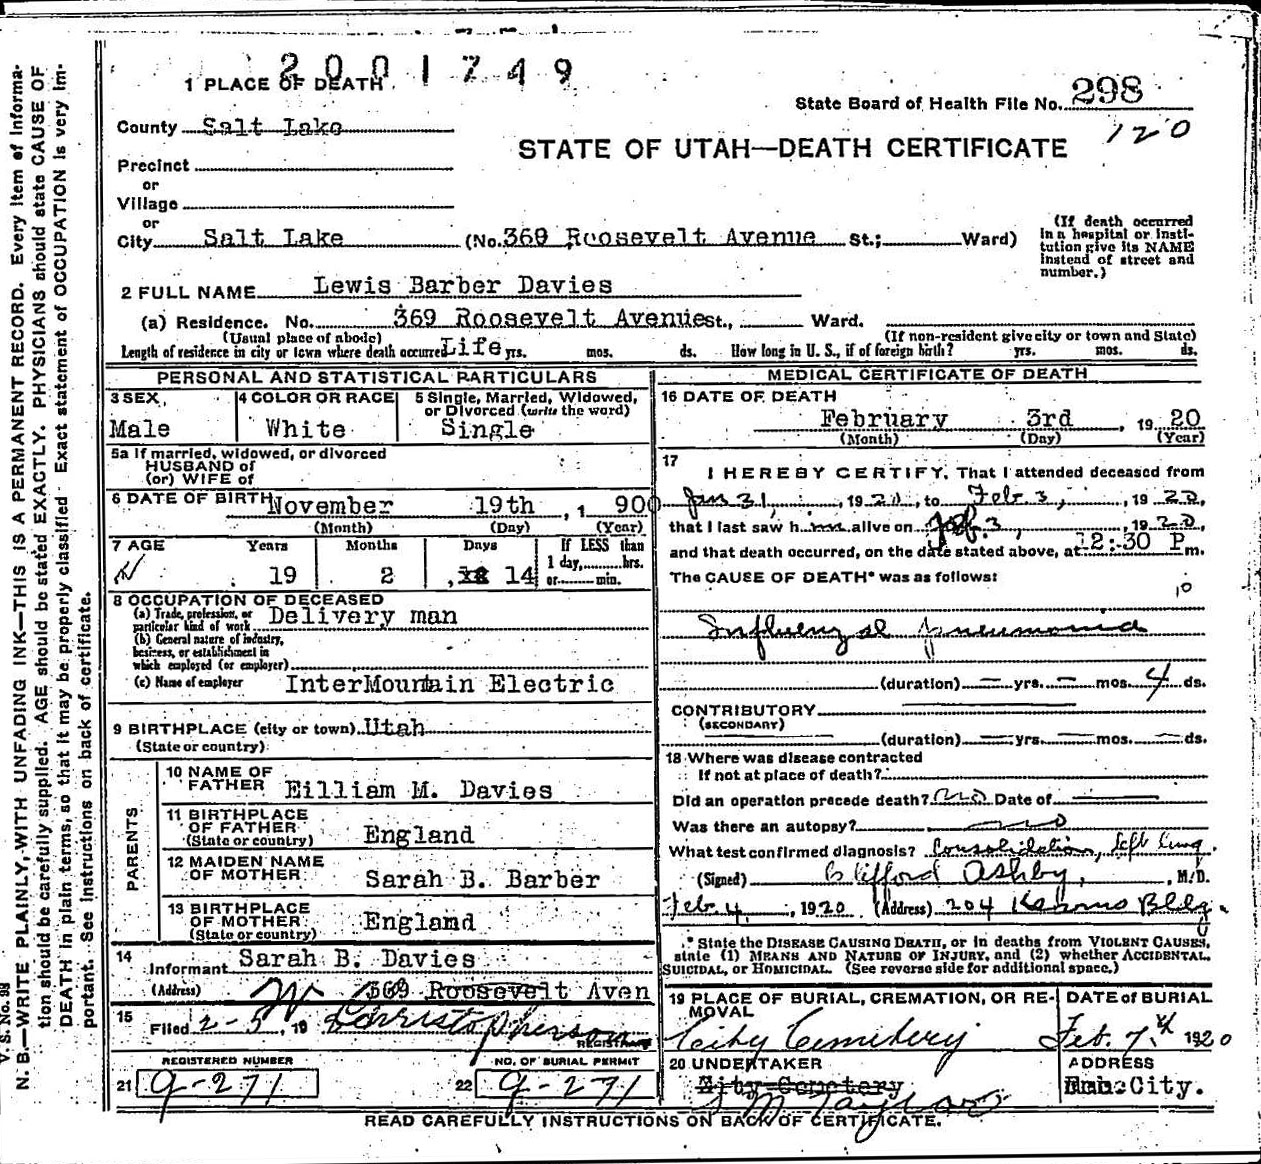 2001749
1 PLACE OF DEATH
State Board of Health File No. 298
120
County Salt Lake
STATE OF UTAH—DEATH CERTIFICATE
Precinct
or
Village
or
City Salt Lake (No. 369 Roosevelt Avenue St.; Ward)
(If death occurred in a hospital or institution give its NAME instead of street and number.)
2 FULL NAME Lewis Barber Davies
(a) Residence. No. 369 Roosevelt Avenue St., Ward.
(Usual place of abode) (If non-resident give city or town and State)
Length of residence in city or town where death occurred Life yrs. mos. ds. How long in U. S., if of foreign birth? yrs. mos. ds.
PERSONAL AND STATISTICAL PARTICULARS
3 SEX Male
4 COLOR OR RACE White
5 Single, Married, Widowed, or Divorced (write the word) Single
5a If married, widowed, or divorced
HUSBAND of
(or) WIFE of
6 DATE OF BIRTH November 19th, 1 900
(Month) (Day) (Year)
7 AGE Years Months Days If LESS than
1 day, hrs.
or min.
19 2 14
8 OCCUPATION OF DECEASED
(a) Trade, profession, or particular kind of work Delivery man
(b) General nature of industry, business, or establishment in which employed (or employer)
(c) Name of employer InterMountain Electric
9 BIRTHPLACE (city or town) Utah
(State or country)
PARENTS
10 NAME OF FATHER Eilliam M. Davies
11 BIRTHPLACE OF FATHER (State or country) England
12 MAIDEN NAME OF MOTHER Sarah B. Barber
13 BIRTHPLACE OF MOTHER (State or country) England
14 Informant Sarah B. Davies
(Address) 369 Roosevelt Aven
15 Filed 2-5, 19
REGISTRAR
REGISTERED NUMBER NO. OF BURIAL PERMIT
21 9-271 22 9-271
MEDICAL CERTIFICATE OF DEATH
16 DATE OF DEATH
February 3rd, 19 20
(Month) (Day) (Year)
17 I HEREBY CERTIFY, That I attended deceased from
Jan 31, 1920, to Feb. 3, 1920,
that I last saw him alive on Feb. 3, 1920,
and that death occurred, on the date stated above, at 12:30 P m.
The CAUSE OF DEATH* was as follows:
10
Influenzal Pneumonia
(duration) — yrs. — mos. 4 ds.
CONTRIBUTORY
(SECONDARY)
(duration) — yrs. — mos. — ds.
18 Where was disease contracted
If not at place of death?
Did an operation precede death? no Date of
Was there an autopsy? no
What test confirmed diagnosis? Consolidation, left lung.
(Signed) Clifford Ashby, M.D.
Feb 4, 1920 (Address) 204 Kearns Bldg.
* State the DISEASE CAUSING DEATH, or in deaths from VIOLENT CAUSES, state (1) MEANS AND NATURE OF INJURY, and (2) whether ACCIDENTAL, SUICIDAL, or HOMICIDAL. (See reverse side for additional space.)
19 PLACE OF BURIAL, CREMATION, OR REMOVAL City Cemetery
DATE of BURIAL Feb. 7th 1920
20 UNDERTAKER
City Cemetery
ADDRESS
City.
READ CAREFULLY INSTRUCTIONS ON BACK OF CERTIFICATE.
V. S. No. 98
N. B.—WRITE PLAINLY, WITH UNFADING INK—THIS IS A PERMANENT RECORD. Every item of information should be carefully supplied. AGE should be stated EXACTLY. PHYSICIANS should state CAUSE OF DEATH in plain terms, so that it may be properly classified. Exact statement of OCCUPATION is very important. See instructions on back of certificate.